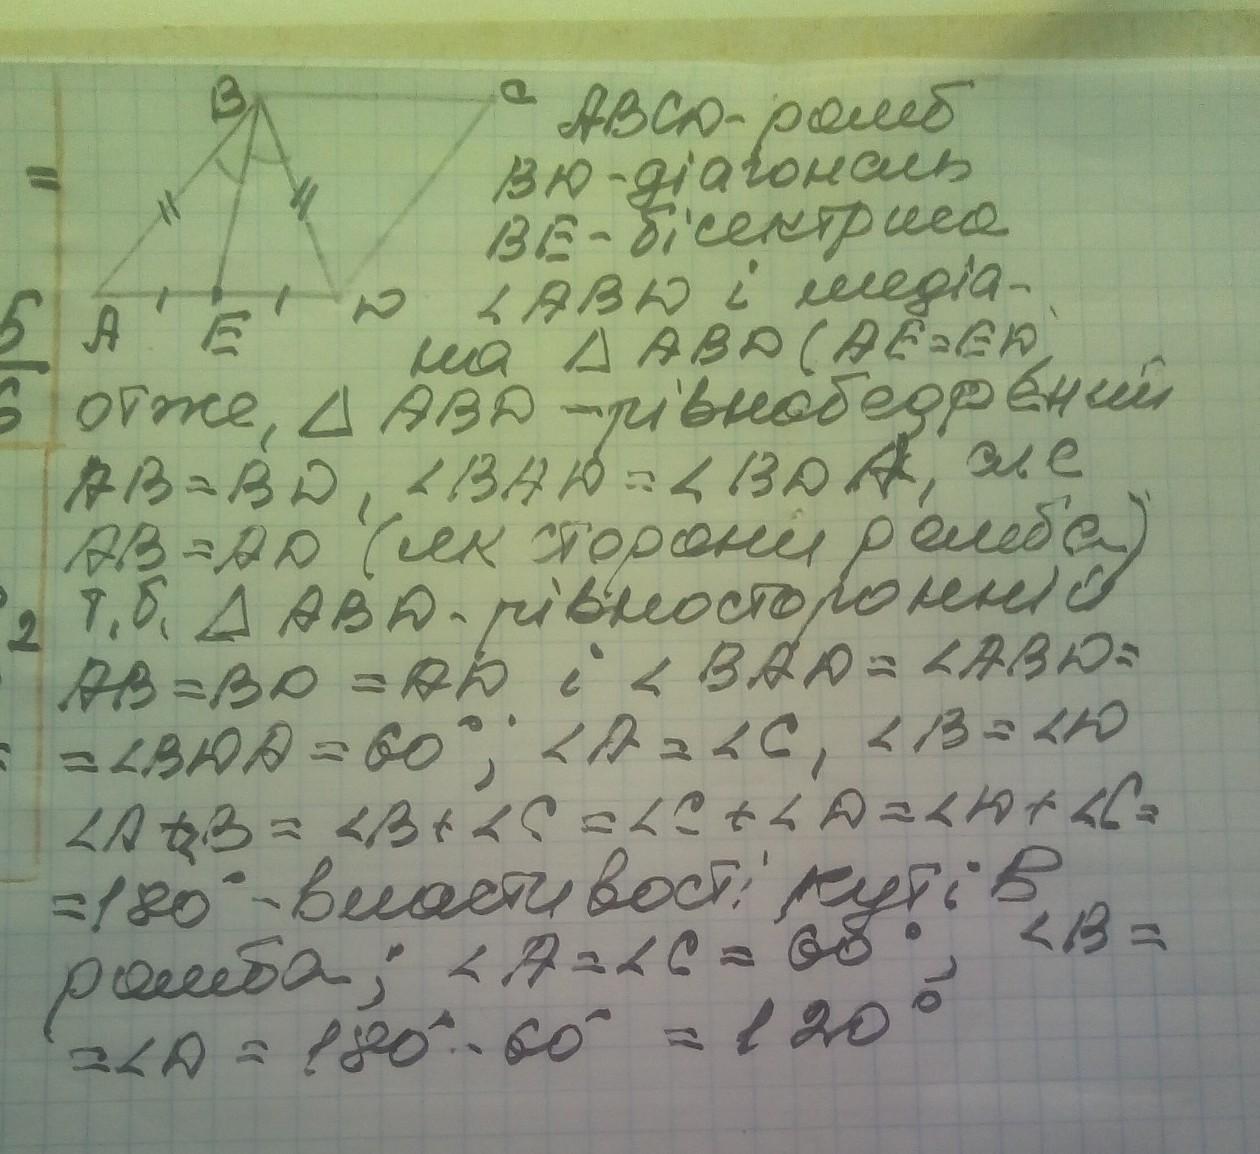 B C ABCD-ромб
= BD-діагональ
BE-бісектриса
A E D ∠ABD і медіа-
5 на △ABD (AE=ED,
6 отже, △ABD-рівнобедрений
AB=BD, ∠BAD=∠BDA, але
AB=AD (як сторони ромба)
2 т.б. △ABD-рівносторонній
AB=BD=AD і ∠BAD=∠ABD=
=∠BDA=60°; ∠A=∠C, ∠B=∠D
∠A+∠B=∠B+∠C=∠C+∠D=∠D+∠C=
=180°-властивості кутів
ромба; ∠A=∠C=60°, ∠B=
=∠D=180°-60°=120°